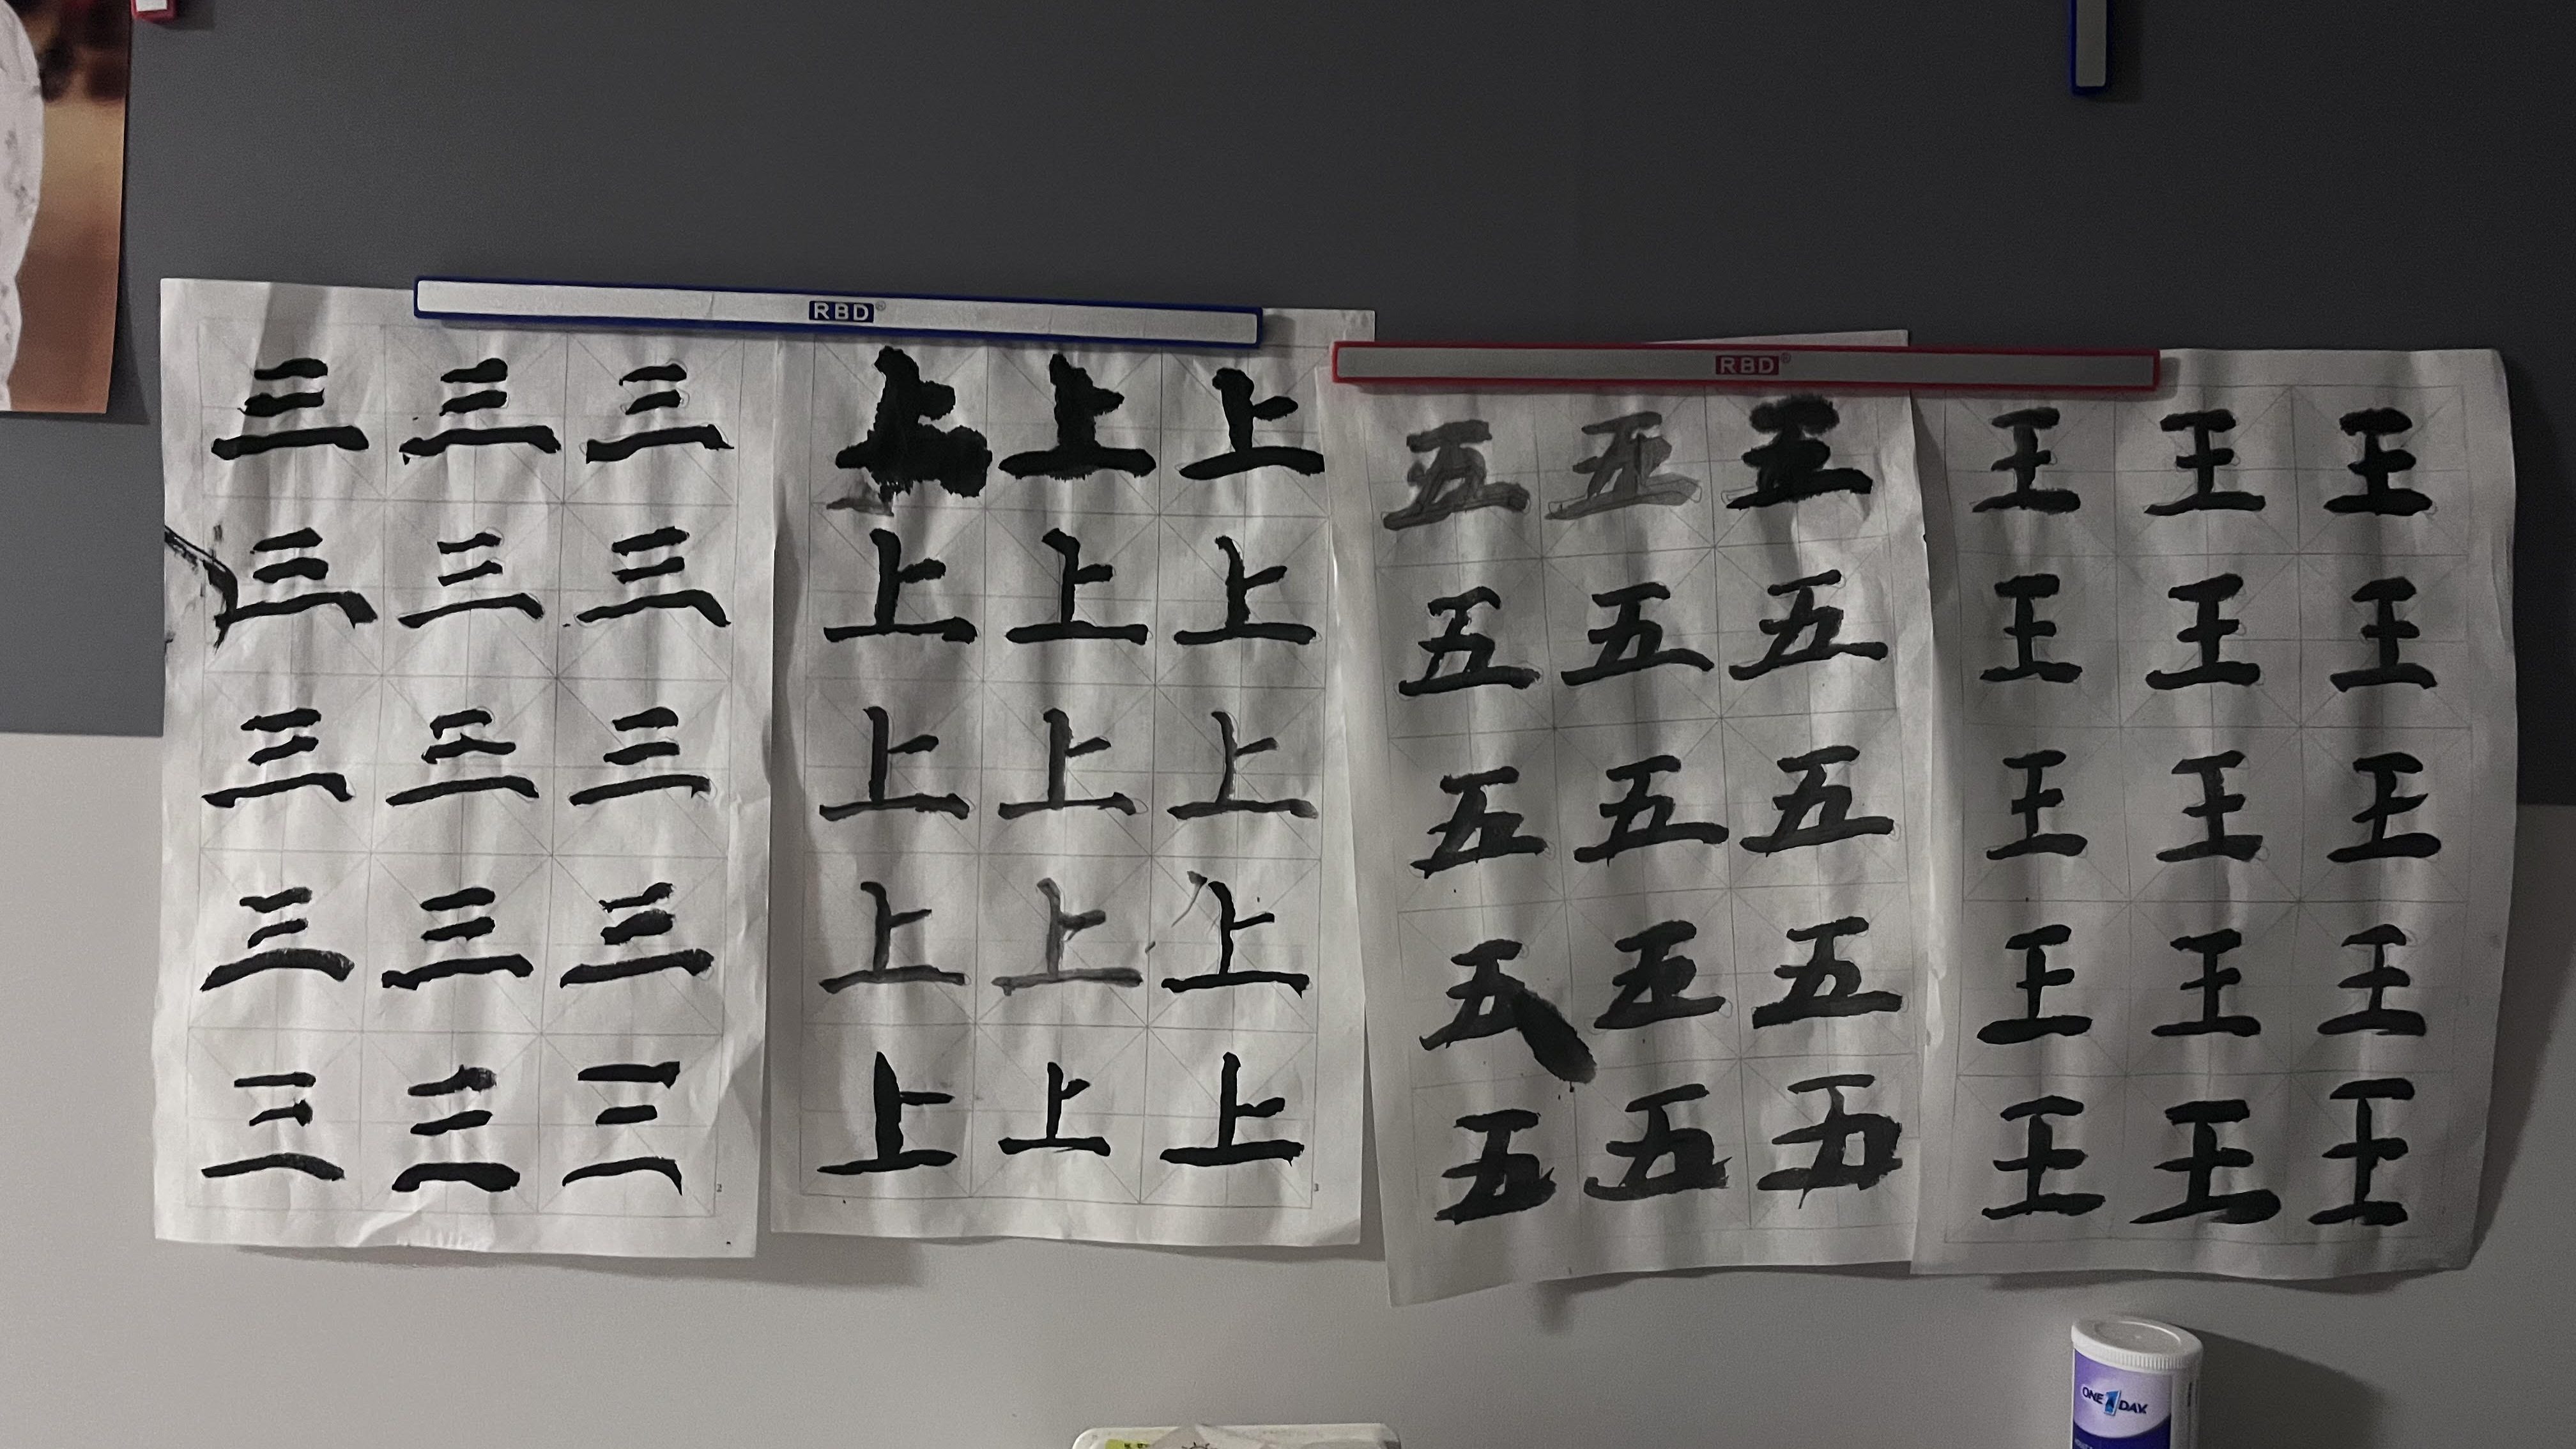 RBD
RBD
三 三 三
三 三 三
三 三 三
三 三 三
三 三 三
2
上 上 上
上 上 上
上 上 上
上 上 上
上 上 上
3
五 五 五
五 五 五
五 五 五
五 五 五
五 五 五
王 王 王
王 王 王
王 王 王
王 王 王
王 王 王
ONE 1 DAY